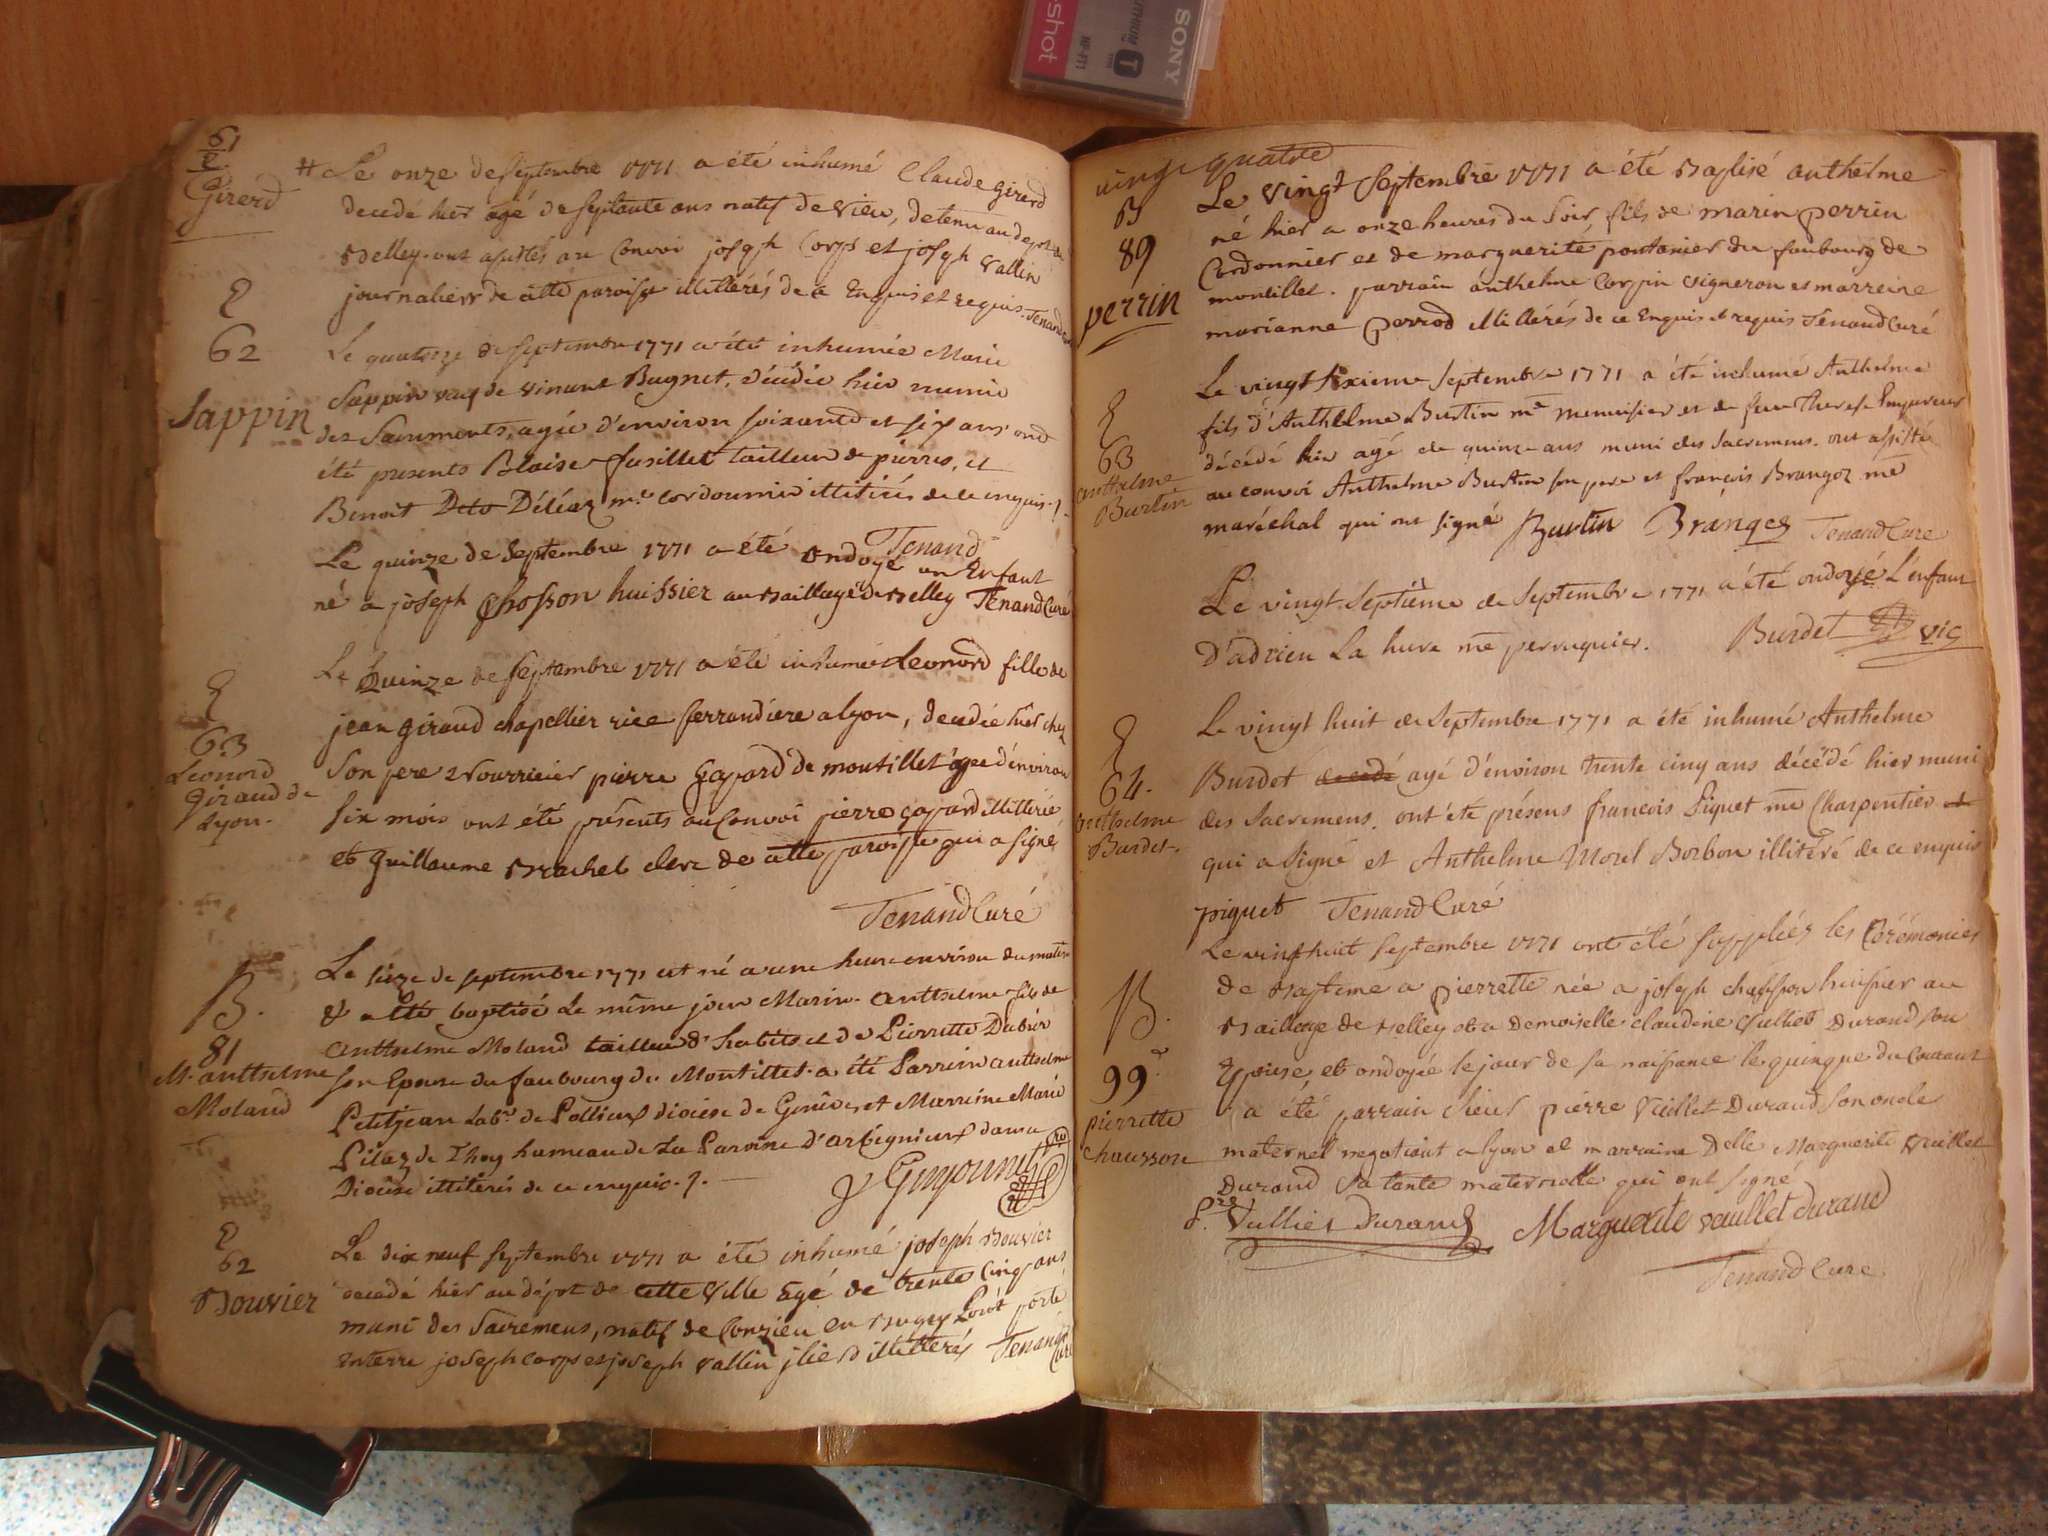 SONY
shot
LITHIUM
NP-FT1
T
61
E
Girerd
# Le onze de septembre 1771 a été inhumé Claude Girerd
decedé hier agé de septante ans natif de Vieu, detenu au depot de
Belley. ont assistés au Convoi joseph Corps et joseph vallin
journaliers de cette paroisse illitérés de ce Enquis et requis. Tenand
E
62
Sappin
Le quatorze de septembre 1771 a été inhumée Marie
Sappin de vincent Bugnet, décédée hier munie
des Sacrements, agée d'environ soixante et six ans ont
été presents Blaise fusillet tailleur de pierres, et
Benoit Déléaz me. Cordonnier illitérés de ce enquis.
Tenand
Le quinze de Septembre 1771 a été ondoyé un Enfant
né a joseph Chosson huissier au Baillage de Belley Tenand Curé
E
63
Leonord
Giraud de
Lyon.
Le Quinze de septembre 1771 a été inhumée Leonord fille de
jean giraud chapellier rüe ferrandiere a lyon, decedée hier chez
son pere Nourricier pierre gapard de montillet agée d'environ
six mois ont été présents au Convoi pierre gapard illitéré
et guillaume Brachet clerc de cette paroisse qui a signé
Tenand Curé
B.
81
M. anthelme
Moland
Le seize de septembre 1771 est né a une heure environ du matin
& a été baptisé le même jour Marin-anthelme fils de
anthelme Moland tailleur d'habits et de Pierrette Dubier
son Epouse du faubourg de Montillet. a été Parrein anthelme
Petitjean Labr. de Pollieux diocèse de Genève, et Marreine Marie
Pilaz de Thoy hameau de la Paroisse d'arbignieux dans ce
Diocèse illiterés de ce enquis.
E
62
Bouvier
Le dix neuf septembre 1771 a été inhumé joseph Bouvier
decedé hier au dépot de cette ville agé de trente cinq ans
muni des Sacremens, natif de Conzieu en Bugey L'ont porté
enterré joseph Corps et joseph vallin illittérés Tenand
Curé
vingt quatre
B
89
perrin
Le vingt septembre 1771 a été Baptisé anthelme
né hier a onze heures du soir fils de marin perrin
Cordonnier et de marguerite pontanier du faubourg de
montillet. parrain anthelme Corpin vigneron et marreine
marianne perrod illitérés de ce Enquis et requis Tenand Curé
E
63
anthelme
Burtin
Le vingt sixieme septembre 1771 a été inhumé Anthelme
fils d'Anthelme Burtin me menuisier et de feue Therese Empereur
décédé hier agé de quinze ans muni des Sacremens. ont assisté
au convoi Anthelme Burtin son pere et françois Brangoz me
maréchal qui ont signé Burtin Brangez Tenand Curé
Le vingt-septième de Septembre 1771 a été ondoyé L'enfant
D'adrien La hure me perruquier. Burdet vic
E
64.
anthelme
Burdet.
Le vingt huit de Septembre 1771 a été inhumé Anthelme
Burdet decedé agé d'environ trente cinq ans décédé hier muni
des Sacremens. ont été présens françois Piguet me Charpentier et
qui a signé et Anthelme Morel Borbon illitéré de ce enquis
piguet Tenand Curé
B.
99
pierrette
chausson
Le vingt huit septembre 1771 ont été suppléez les Cérémonies
de Bapteme a pierrette née a joseph chosson huissier au
Baillage de Belley et a Demoiselle claudine Vulliet Durand son
Epouse, et ondoyée le jour de sa naissance le quinze du Courant
a été parrain sieur pierre Vulliet Durand son oncle
maternel negotiant a lyon et marraine Delle Marguerite Vuillet
Durand sa tante maternelle qui ont signé
Pre. Vulliet Durand Marguerite vuillet durand
Tenand Curé